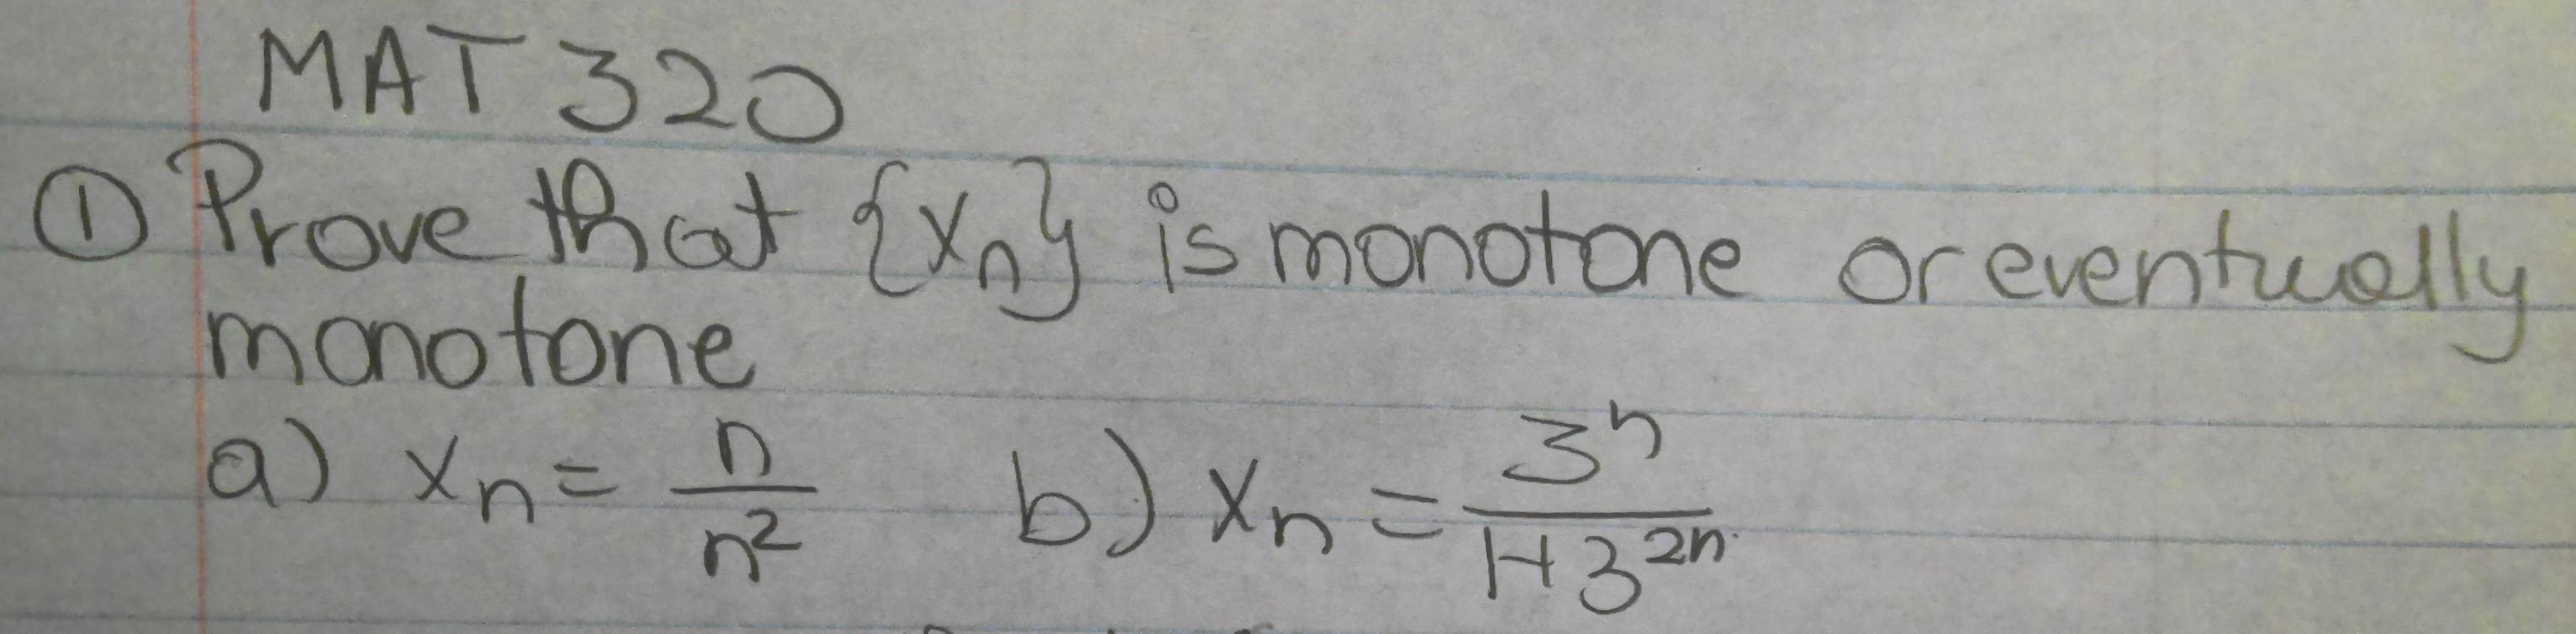 MAT 320
① Prove that {xₙ} is monotone or eventually
monotone
a) xₙ = n/n² b) xₙ = 3ⁿ/1+3²ⁿ